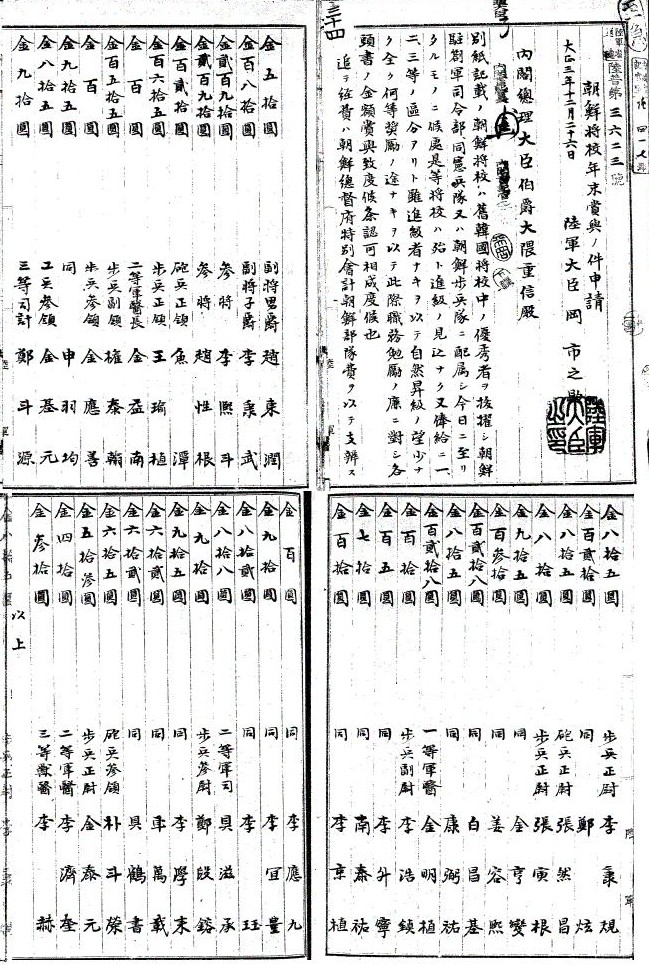 陸普第三六二三號
朝鮮將校年末賞與ノ件申請
大正三年十二月二十六日
陸軍大臣岡市之助
陸軍大臣之印
內閣總理大臣伯爵大隈重信殿
別紙記載ノ朝鮮將校ハ舊韓國將校中ノ優秀者ヲ拔擢シ朝鮮
駐劄軍司令部同憲兵隊又ハ朝鮮步兵隊ニ配屬シ今日ニ至リ
タルモノニ候處是等將校ハ殆ト進級ノ見込ナク又俸給ニ一
二、三等ノ區分アリト雖進級者ナキヲ以テ自然昇級ノ望少ナ
ク全ク何等奬勵ノ途ナキヲ以テ此際職務勉勵ノ廉ニ對シ各
頭書ノ金額賞與致度候条認可相成度候也
追テ經費ハ朝鮮總督府特別會計朝鮮部隊費ヲ以テ支辨ス
三十四
金五拾圓 副將男爵 趙東潤
金百八拾圓 副將子爵 李秉武
金貳百九拾圓 參將 李熙斗
金貳百九拾圓 參將 趙性根
金百貳拾圓 砲兵正領 魚潭
金百六拾圓 步兵正領 王瑜植
金百圓 二等軍醫長 金益南
金百五拾五圓 步兵副領 權泰翰
金百圓 步兵參領 金應善
金九拾五圓 同 申羽均
金八拾五圓 工兵參領 金基元
金九拾圓 三等司計 鄭斗源
金八拾五圓 步兵正尉 李秉規
金百貳拾圓 同 鄭炫
金八拾五圓 砲兵正尉 張然昌
金八拾圓 步兵正尉 張寅根
金九拾五圓 同 金亨燮
金百參拾圓 同 姜容熙
金百貳拾八圓 同 白昌基
金八拾五圓 同 康弼祐
金百貳拾八圓 一等軍醫 金明植
金百拾圓 步兵副尉 李浩鎮
金百五圓 同 李升寧
金七拾圓 同 南泰祐
金百拾圓 同 李京植
金百圓 同 李應九
金九拾圓 同 李宜豐
金八拾貳圓 同 李珏
金八拾八圓 二等軍司 具滋承
金九拾圓 步兵參尉 鄭殷鎔
金九拾五圓 同 李學來
金六拾貳圓 同 車萬載
金六拾圓 同 具鶴書
金六拾五圓 砲兵參領 朴斗榮
金五拾參圓 步兵正尉 金泰元
金四拾圓 二等軍醫 李濟奎
金參拾圓 三等獸醫 李赫
以上